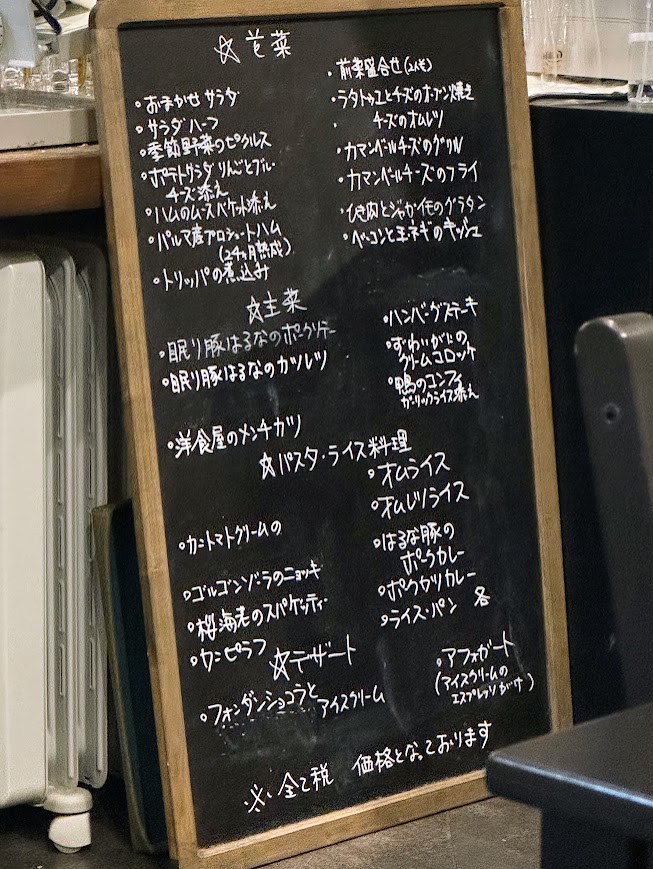 ☆前菜
・おまかせ サラダ
・サラダ ハーフ
・季節野菜のピクルス
・ポテトサラダ りんごとブルー
チーズ添え
・ハムのムース バケット添え
・パルマ産プロシュートハム
(24ヶ月熟成)
・トリッパの煮込み
・前菜盛合せ(2人〜)
・ラタトゥユとチーズのオーブン焼き
・チーズのオムレツ
・カマンベールチーズのグリル
・カマンベールチーズのフライ
・ひき肉とジャガイモのグラタン
・ベーコンと玉ネギのキッシュ
☆主菜
・眠り豚はるなのポークソテー
・眠り豚はるなのカツレツ
・洋食屋のメンチカツ
・ハンバーグステーキ
・ずわいがにの
クリームコロッケ
・鴨のコンフィ
ガーリックライス添え
☆パスタ・ライス料理
・カニトマトクリームの
・ゴルゴンゾーラのニョッキ
・桜海老のスパゲッティー
・カニピラフ
・オムライス
・オムレツライス
・はるな豚の
ポークカレー
・ポークカツカレー
・ライス・パン 各
☆デザート
・フォンダンショコラと
アイスクリーム
・アフォガート
(アイスクリームの
エスプレッソがけ)
※全て税 価格となっております